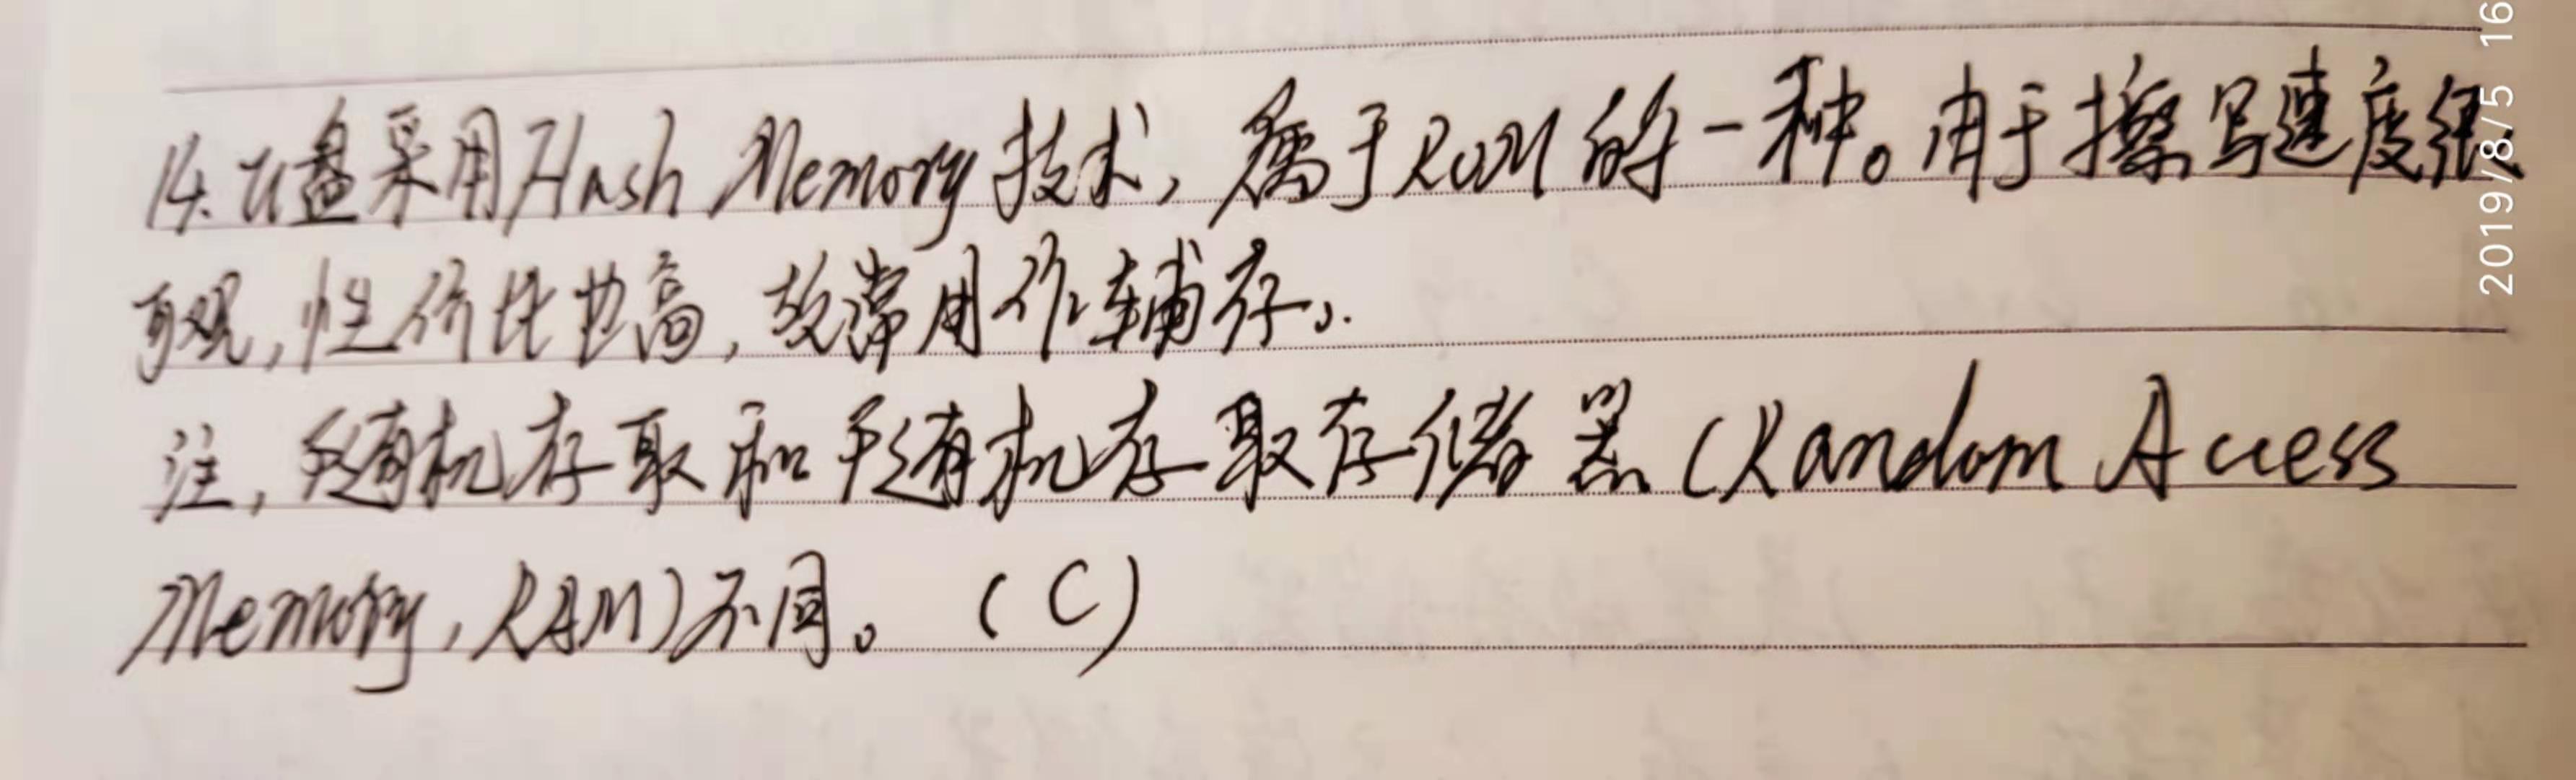 14. U盘采用Flash Memory技术，属于ROM的一种。由于擦写速度很
可观，性价比也高，故常用作辅存。
注，随机存取和随机存取存储器（Random Access
Memory，RAM）不同。（C）
2019/8/5 16